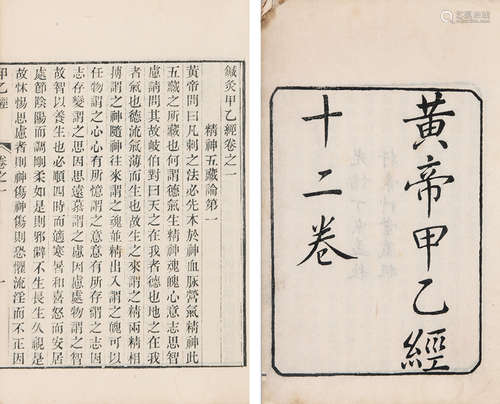 黃帝甲乙經
十二卷
鍼灸甲乙經卷之一
精神五藏論第一
黃帝問曰凡刺之法必先本於神血脉營氣精神此
五藏之所藏也何謂德氣生精神魂魄心意志思智
慮請問其故岐伯對曰天之在我者德也地之在我
者氣也德流氣薄而生也故生之來謂之精兩精相
搏謂之神隨神往來謂之魂並精出入謂之魄可以
任物謂之心心有所憶謂之意意有所存謂之志因
志存變謂之思因思遠慕謂之慮因慮處物謂之智
故智以養生也必順四時而適寒暑和喜怒而安居
處節陰陽而調剛柔如是則邪僻不生長生久視是
故怵惕思慮者則神傷神傷則恐懼流淫而不正因
甲乙經 卷之一 一